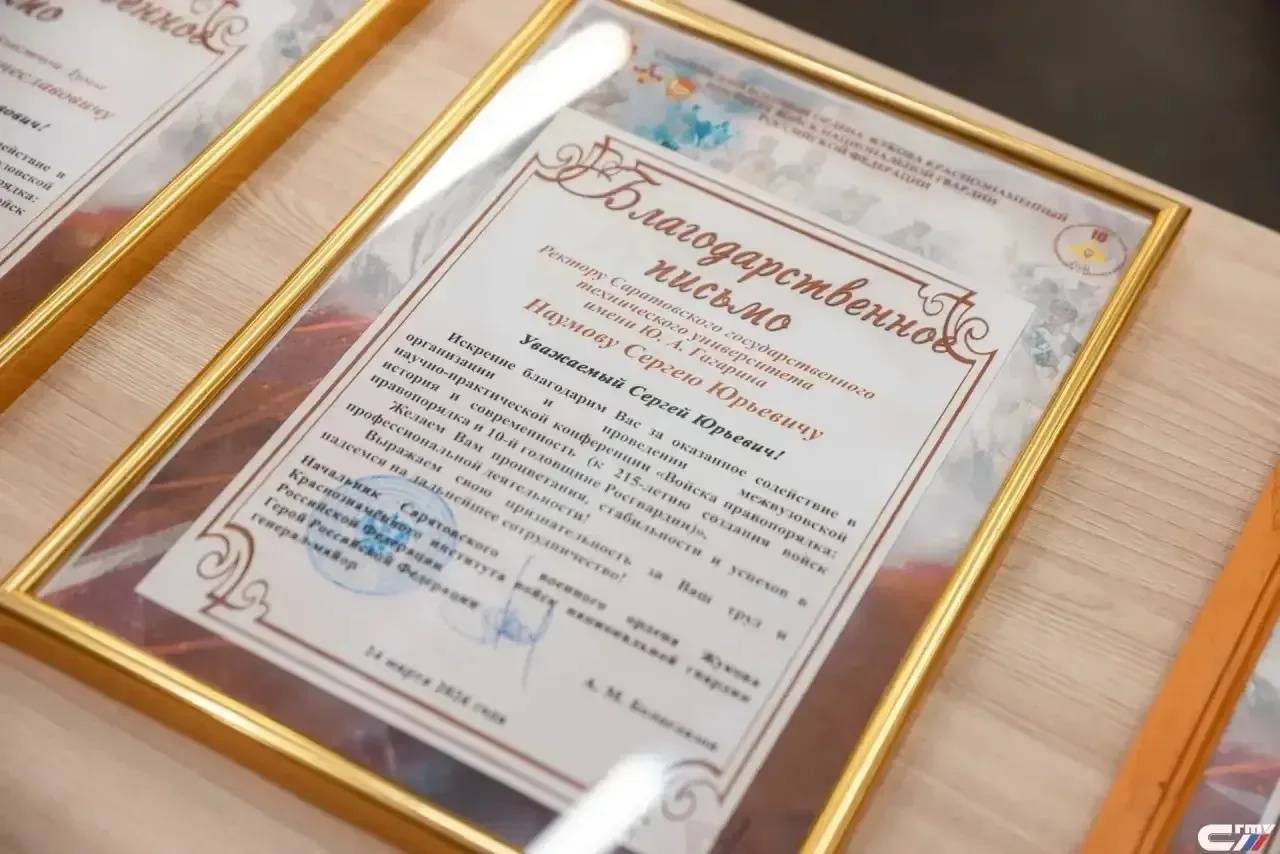 нно
мо
чеславовичу
ович!
ействие в
ловской
рядка:
ойск
ОРДЕНА ЖУКОВА КРАСНОЗНАМЕННЫЙ
ВОЙСК НАЦИОНАЛЬНОЙ ГВАРДИИ
РОССИЙСКОЙ ФЕДЕРАЦИИ
10
Благодарственное
письмо
Ректору Саратовского государственного
технического университета
имени Ю. А. Гагарина
Наумову Сергею Юрьевичу
Уважаемый Сергей Юрьевич!
Искренне благодарим Вас за оказанное содействие в
организации и проведении межвузовской
научно-практической конференции «Войска правопорядка:
история и современность (к 215-летию создания войск
правопорядка и 10-й годовщине Росгвардии)».
Желаем Вам процветания, стабильности и успехов в
профессиональной деятельности!
Выражаем свою признательность за Ваш труд и
надеемся на дальнейшее сотрудничество!
Начальник Саратовского военного ордена Жукова
Краснознаменного института войск национальной гвардии
Российской Федерации
Герой Российской Федерации
генерал-майор
А. М.
марта 2026 года
СГТМУ